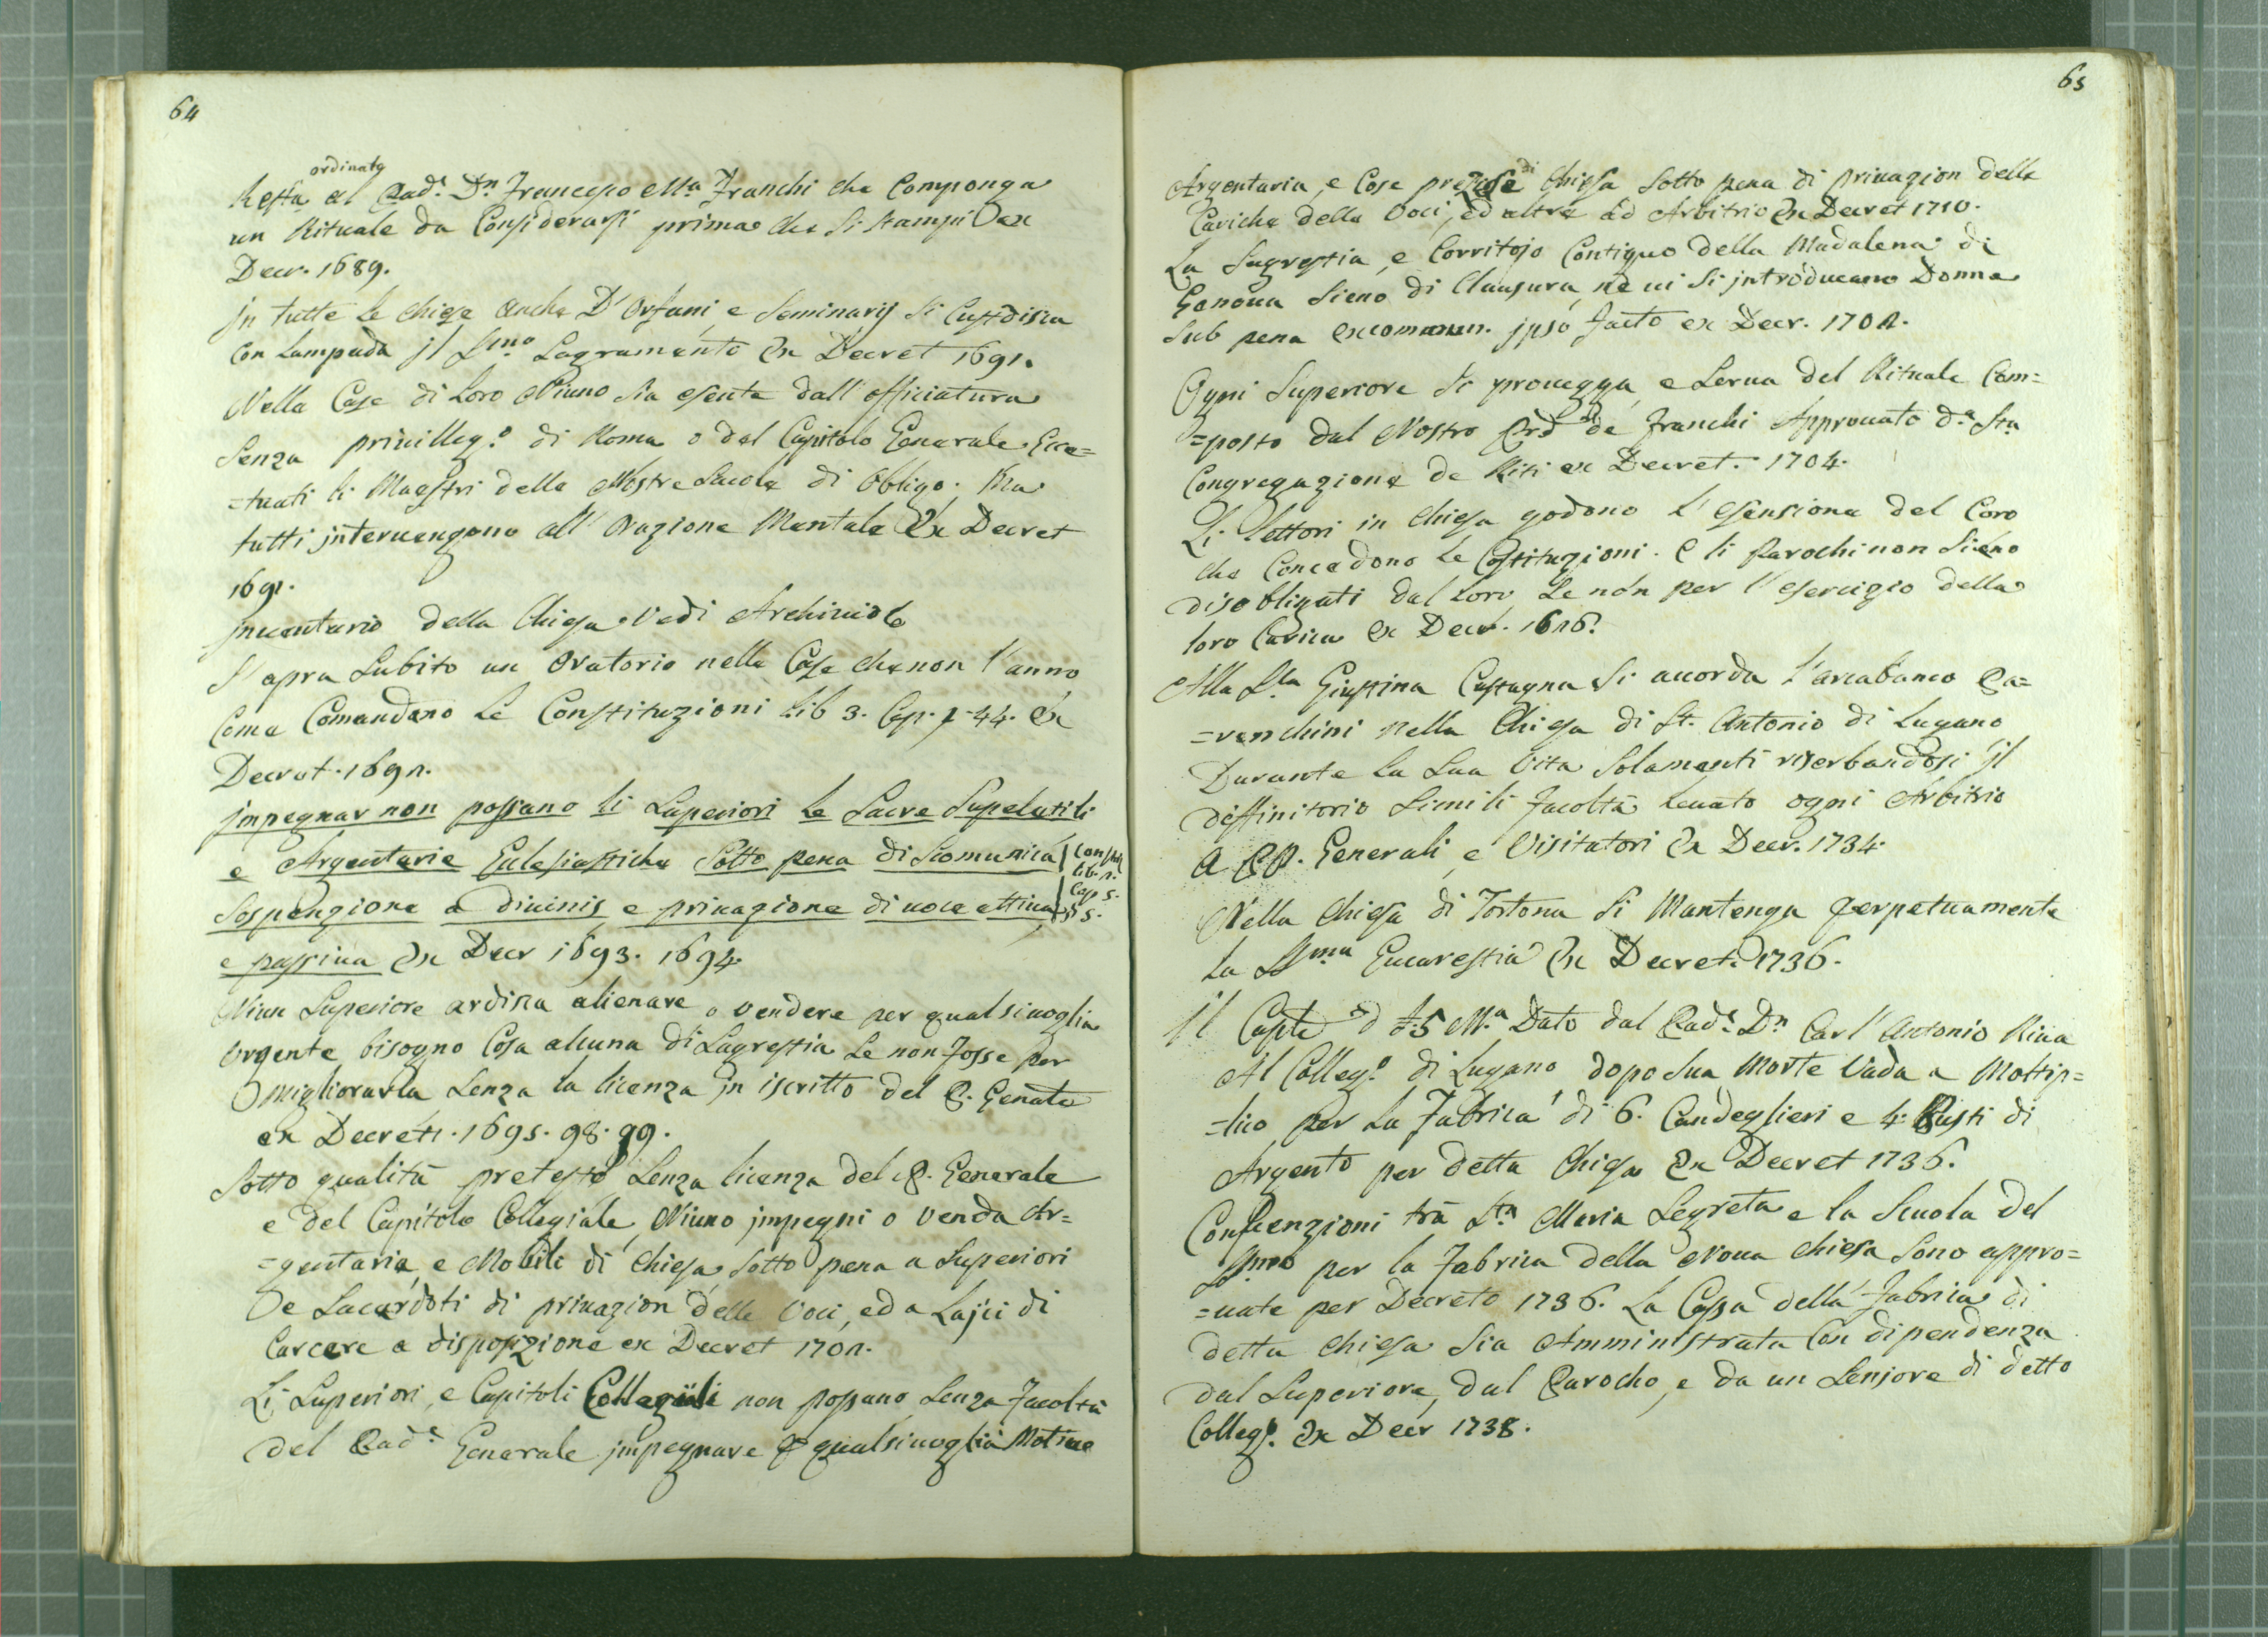 64
ordinato
Resta al Pad.e Dn Francesco Ma Franchi che Componga
un Rituale da Considerarsi prima che si stampi ex
Decr. 1689.
jn tutte le chiese anche D'orfani e Seminarij si Custodisca
con Lampada jl S.mo Sagramento Ex Decret 1691.
Nelle Case di Loro Niuno sia esente dall'officiatura
Senza privilleg.o di Roma o del Capitolo Generale. Ecce=
=tuati li Maestri delle Nostre Scuole di obligo. Ma
tutti jntervengono all'orazione Mentale Ex Decret
1691.
jnventario della Chiesa Vedi Archivio
S'apra Subito un oratorio nelle Case che non l'anno
Come Comandano le Constituzioni Lib 3. Cap. 1. 44. Ex
Decret. 1692.
jmpegnar non possano li Superiori le Sacre Supeletili
e Argentarie Eclesiastiche Sotto pena di Scomunica Constit
Lib. 2.
Sospenzione a divinis e privazione di voce attiva Cap 5.
§ 5.
e passiva Ex Decr 1693. 1694.
Niun Superiore ardisca alienare o vendere per qual sivoglia
urgente bisogno Cosa alcuna di Sagrestia Se non fosse per
migliorarla Senza la licenza jn iscritto del P. Genale
ex Decreti. 1695. 98. 99.
Sotto qualità pretesto Senza licenza del P. Generale
e del Capitolo Collegiale, Niuno jmpegni o venda Ar=
=gentaria, e Mobili di Chiesa Sotto pena a Superiori
e Sacerdoti di privazion delle Voci, ed a Lajci di
Carcere a disposizione ex Decret 1702.
Li Superiori, e Capitoli Collegiali non possano Senza Facoltà
del Pad.e Generale jmpegnare p qualsivoglia Motivo
65
Argentaria, e Cose preziose di Chiesa Sotto pena di privazion delle
Cariche delle Voci, ed altre ad Arbitrio Ex Decret 1710.
La Sagrestia, e Corritojo Contiguo della Madalena di
Genova Sieno di Clausura, ne vi si jntroducano Donne
Sub pena excomun. jpso facto ex Decr. 1702.
Ogni Superiore si provegga, e Serva del Rituale Com=
=posto dal Nostro Prd de Franchi Approvato da Sta
Congregazione de Riti ex Decret. 1704.
Li Lettori in Chiesa godono l'esensione del Coro
che Concedono le Costituzioni. E li Parochi non Sieno
disobligati dal Coro Se non per l'esercizio della
loro Carica Ex Decr. 1626.
Alla S.ra Giustina Castagna si acorda l'arcabanco Pa=
=renchini nella Chiesa di St. Antonio di Lugano
Durante la Sua Vita Solamenti riserbandosi jl
diffinitorio Simili Facoltà levato ogni Arbitrio
a PP. Generali, e Visitatori Ex Decr. 1734.
Nella Chiesa di Tortona Si Mantenga perpetuamente
la SSma Eucarestia Ex Decret. 1736.
jl Caple d 5 M.a Dato dal Pad.e Dn Carl'Antonio Riva
Al Colleg.o di Lugano dopo Sua Morte Vada a
=lico per la Fabrica di 6. Candeglieri e 4. Busti di
Argento per detta Chiesa Ex Decret 1736.
Convenzioni trà Sta Maria Segreta e la Scuola del
SSmo per la Fabrica della Nova Chiesa Sono appro=
=vate per Decreto 1736. La Cassa della Fabrica di
detta Chiesa Sia Amministrata Con dipendenza
dal Superiore, dal Parocho, e da un Seniore di detto
Colleg.o Ex Decr 1738.